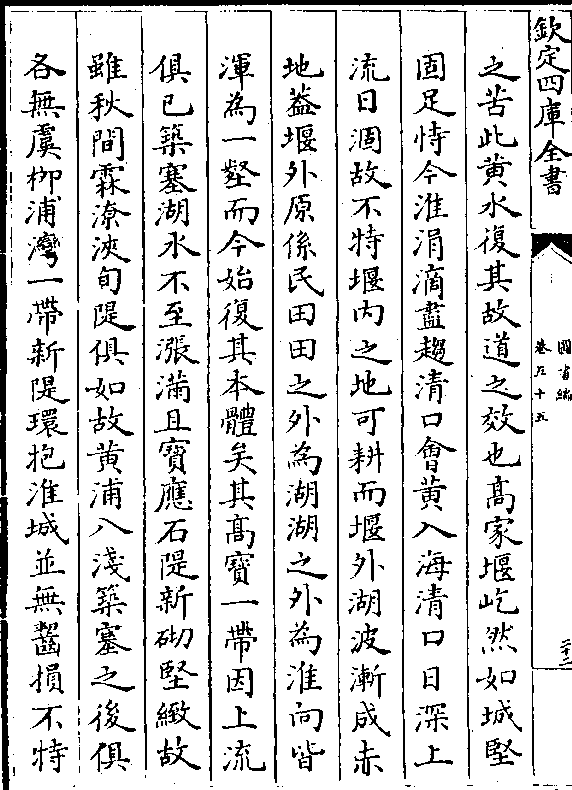 欽定四庫全書
圖書編
卷五十五
二十二
之苦此黃水復其故道之效也髙家堰屹然如城堅
固足恃今淮涓滴盡趨清口會黃入海清口日深上
流日涸故不特堰內之地可耕而堰外湖波漸成赤
地葢堰外原係民田田之外為湖湖之外為淮向皆
渾為一壑而今始復其本體矣其髙寶一帶因上流
俱已築塞湖水不至漲滿且寶應石隄新砌堅緻故
雖秋間霖潦浹旬隄俱如故黃浦八淺築塞之後俱
各無虞栁浦灣一帶新隄環抱淮城並無齧損不特